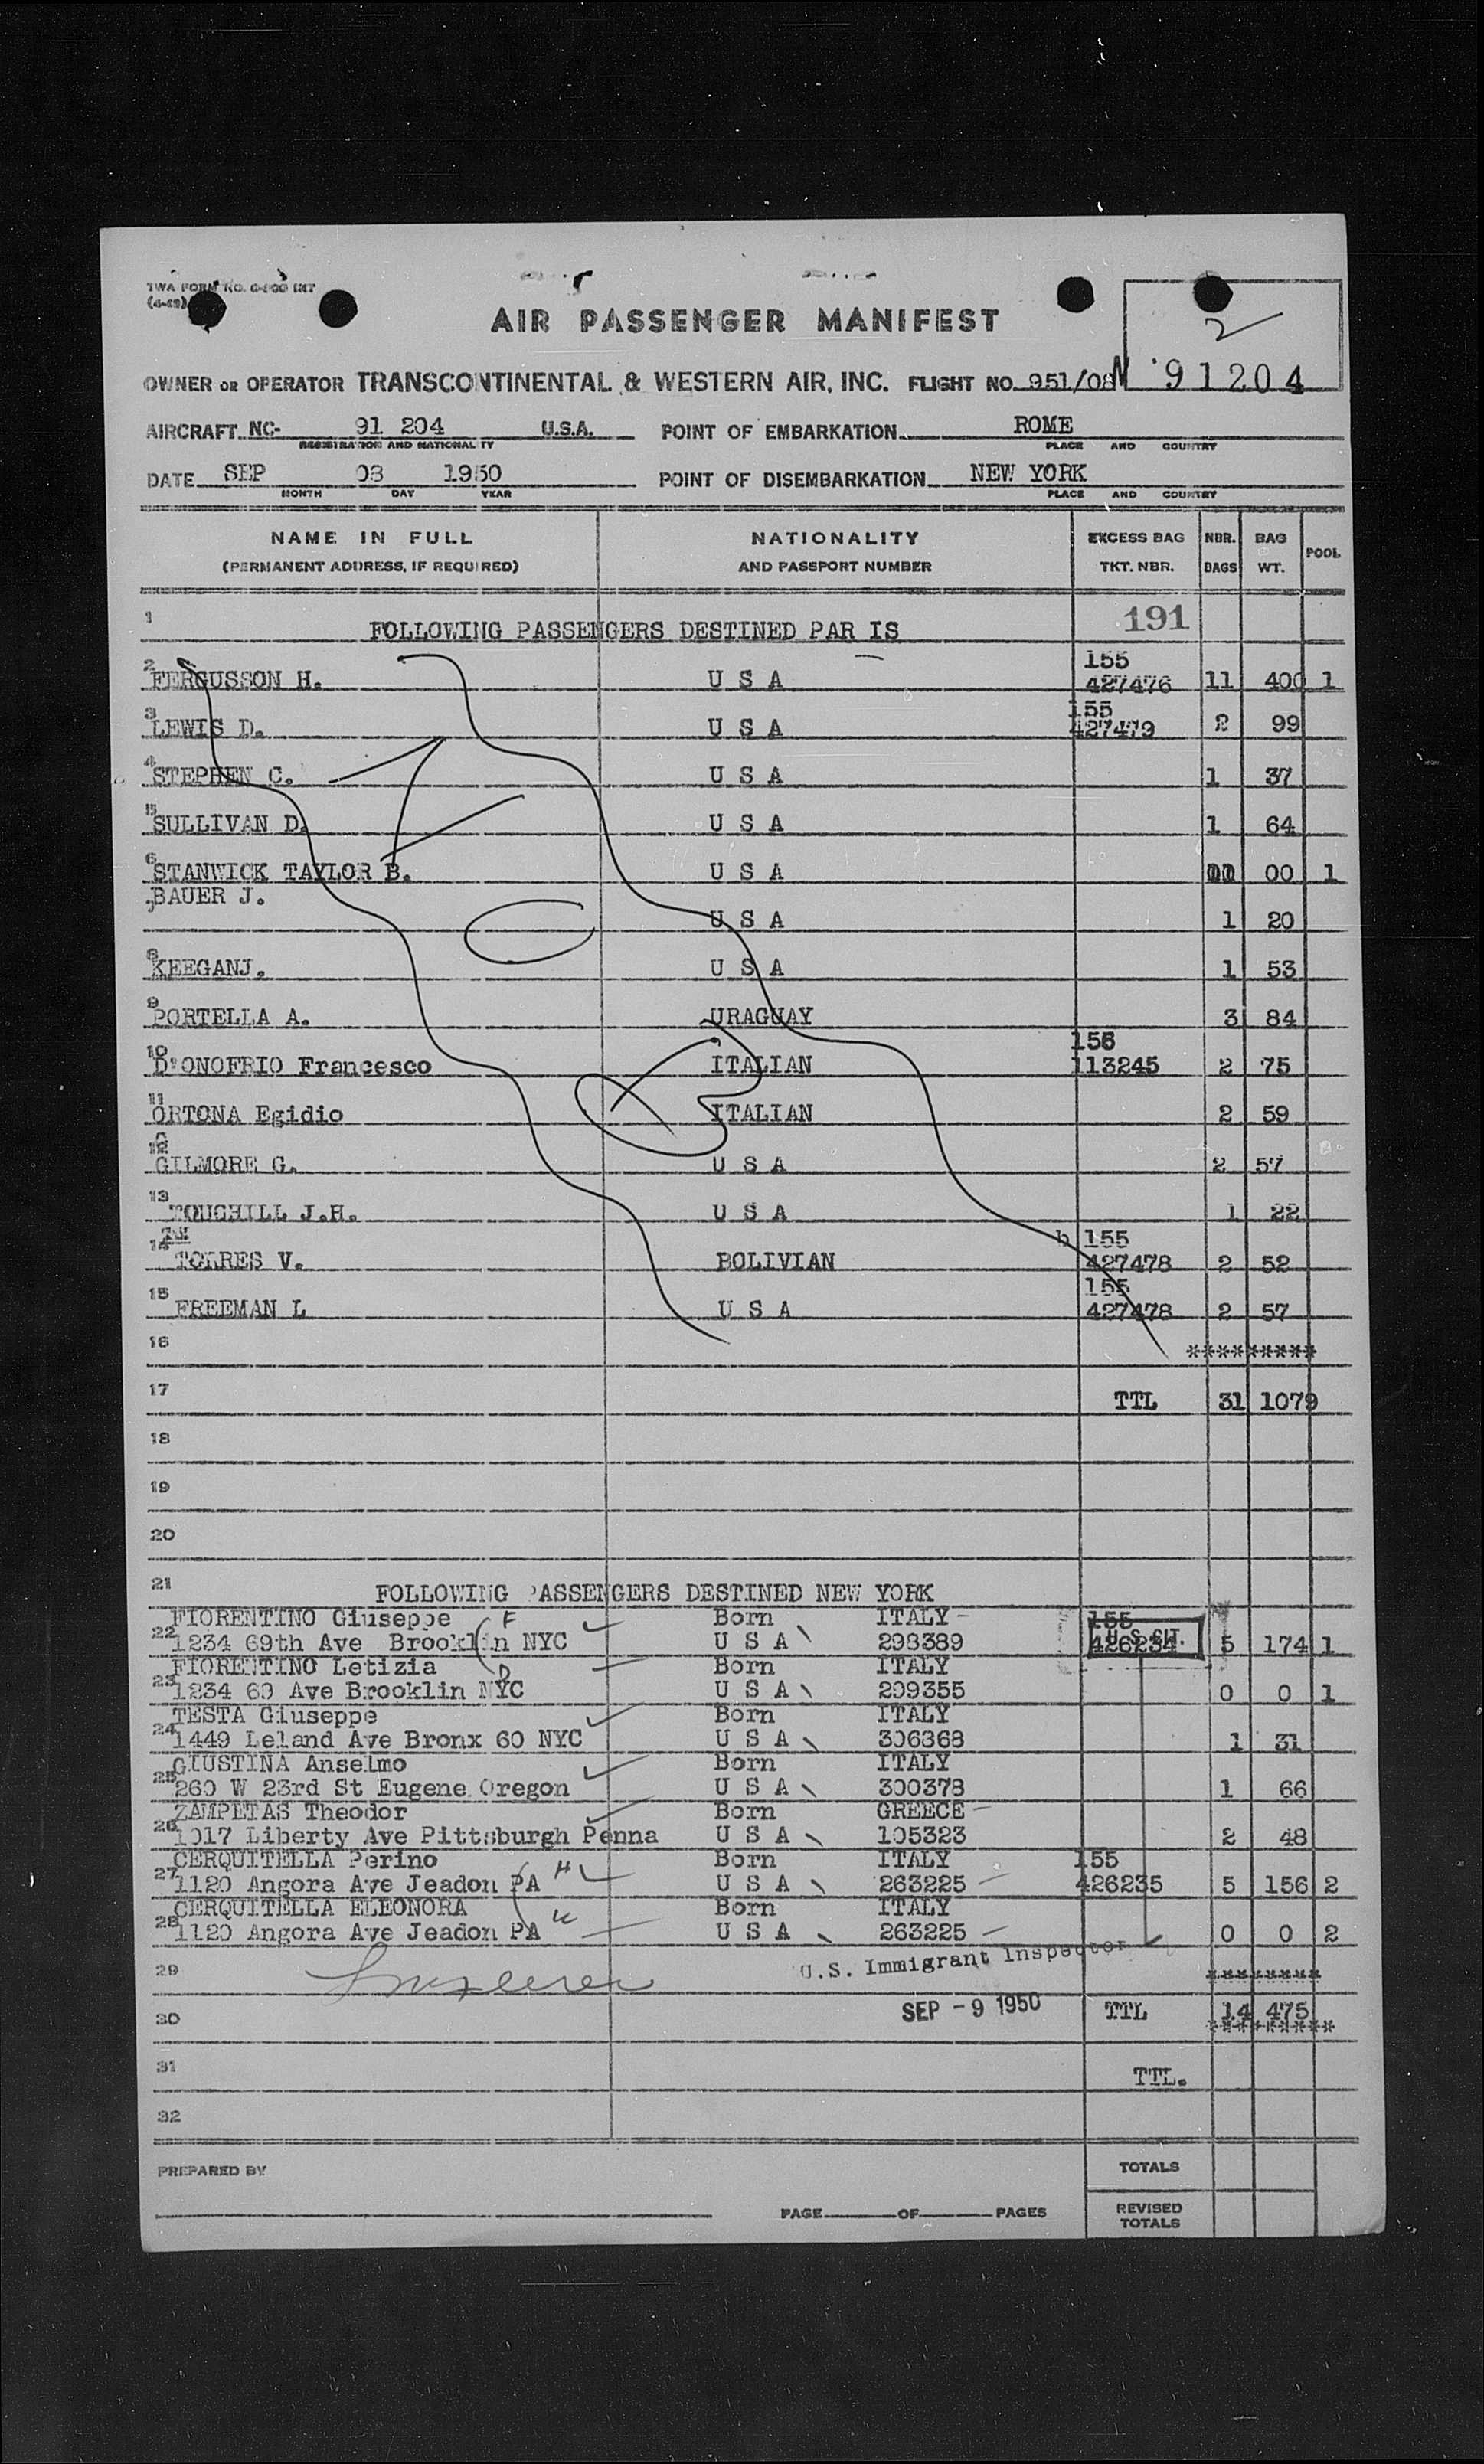 TWA FORM NO.
AIR PASSENGER MANIFEST
2
OWNER OR OPERATOR TRANSCONTINENTAL & WESTERN AIR, INC. FLIGHT NO. 951/08 N 91204
AIRCRAFT NC- 91 204 U.S.A. POINT OF EMBARKATION ROME
REGISTRATION AND NATIONALITY PLACE AND COUNTRY
DATE SEP 08 1950 POINT OF DISEMBARKATION NEW YORK
MONTH DAY YEAR PLACE AND COUNTRY
NAME IN FULL NATIONALITY EXCESS BAG NBR. BAG POOL
(PERMANENT ADDRESS, IF REQUIRED) AND PASSPORT NUMBER TKT. NBR. BAGS WT.
1 FOLLOWING PASSENGERS DESTINED PAR IS 191
155
2 FERGUSSON H. U S A 427476 11 400 1
155
3 LEWIS D. U S A 427479 2 99
4 STEPHEN C. U S A 1 37
5 SULLIVAN D. U S A 1 64
6 STANWICK TAYLOR B. U S A 00 1
BAUER J.
7 U S A 1 20
8 KEEGANJ. U S A 1 53
9 PORTELLA A. URAGUAY 3 84
156
10 D'ONOFRIO Francesco ITALIAN 113245 2 75
11 ORTONA Egidio ITALIAN 2 59
12 GILMORE G. U S A 2 57
13 TOUGHILL J.H. U S A 1 22
h 155
14 TORRES V. BOLIVIAN 427478 2 52
155
15 FREEMAN L U S A 427478 2 57
16 *********
17 TTL 31 1079
18
19
20
21 FOLLOWING PASSENGERS DESTINED NEW YORK
FIORENTINO Giuseppe F Born ITALY 155
22 1234 69th Ave Brooklin NYC U S A 298389 426234 U.S. CIT. 5 174 1
FIORENTINO Letizia D Born ITALY
23 1234 69 Ave Brooklin NYC U S A 299355 0 0 1
TESTA Giuseppe Born ITALY
24 1449 Leland Ave Bronx 60 NYC U S A 306368 1 31
GIUSTINA Anselmo Born ITALY
25 260 W 23rd St Eugene Oregon U S A 300378 1 66
ZAMPETAS Theodor Born GREECE
26 1017 Liberty Ave Pittsburgh Penna U S A 105323 2 48
CERQUITELLA Perino H Born ITALY 155
27 1120 Angora Ave Jeadon PA U S A 263225 426235 5 156 2
CERQUITELLA ELEONORA Born ITALY
28 1120 Angora Ave Jeadon PA U S A 263225 0 0 2
29 U.S. Immigrant Inspector ********
30 SEP - 9 1950 TTL 14 475
*********
31 TTL.
32
PREPARED BY TOTALS
PAGE OF PAGES REVISED
TOTALS